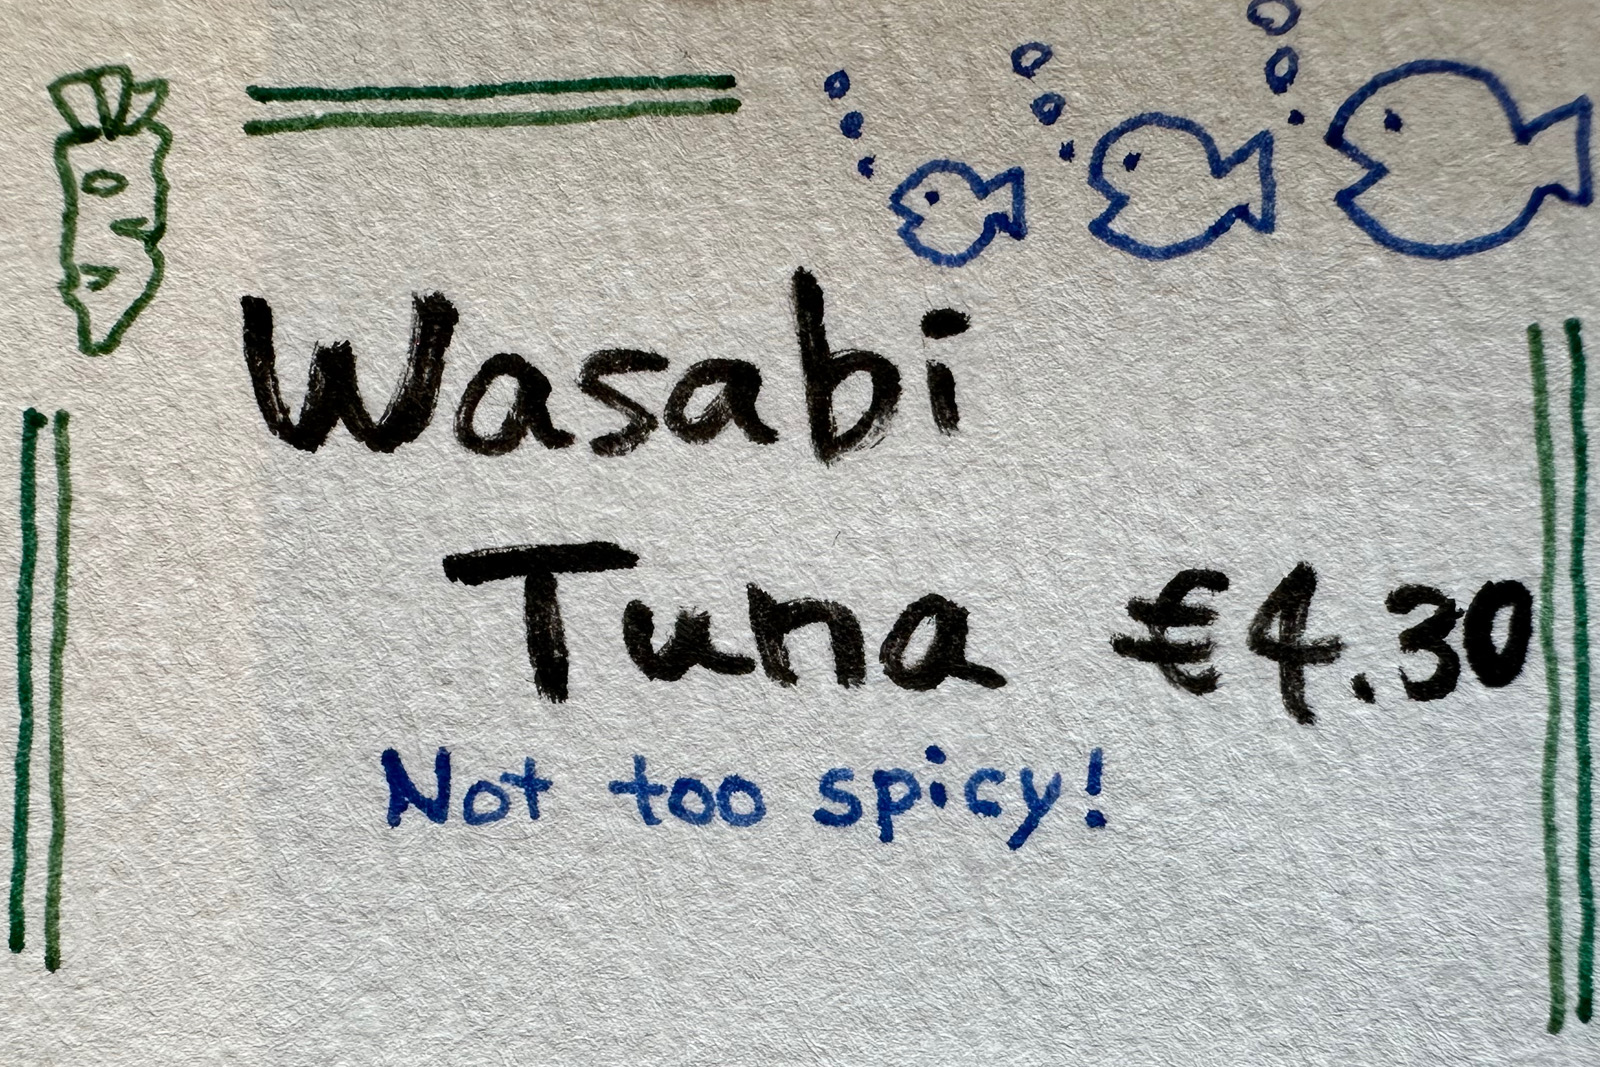 Wasabi
Tuna €4.30
Not too spicy!